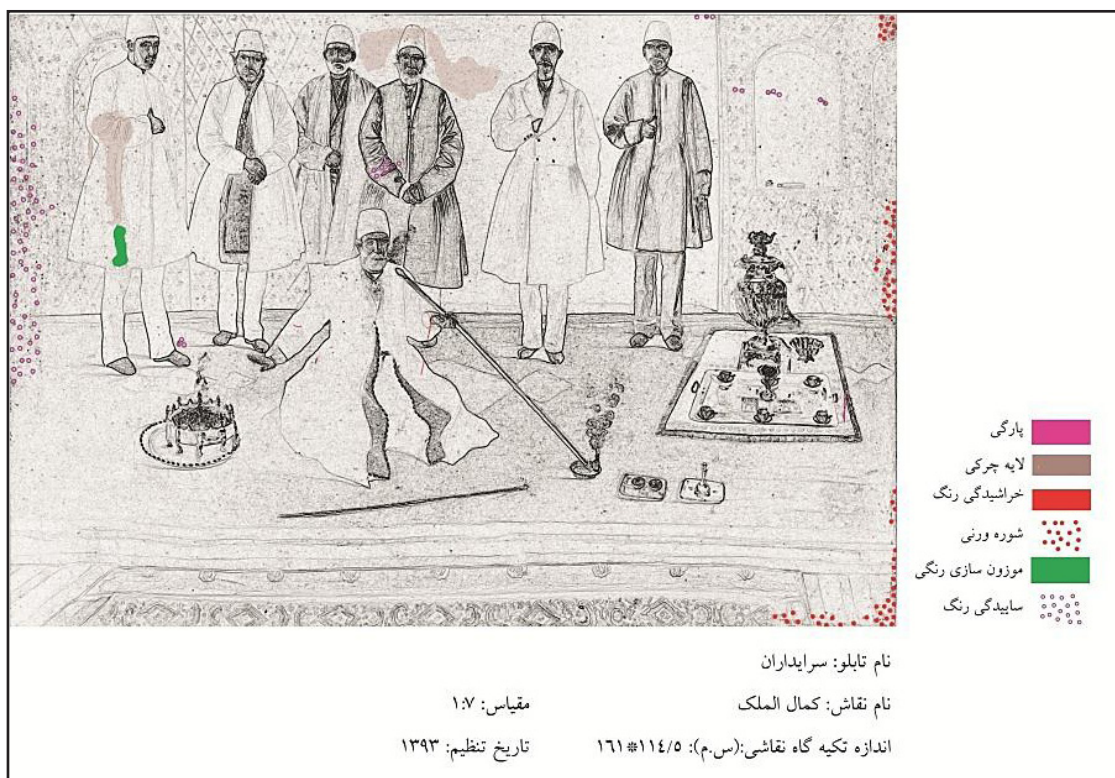 پارگی
لایه چرکی
خراشیدگی رنگ
شوره ورنی
موزون سازی رنگی
ساییدگی رنگ
نام تابلو: سرایداران
نام نقاش: کمال الملک
مقیاس: ۱:۷
اندازه تکیه گاه نقاشی:(س.م): ۱۱۴/۵*۱۶۱
تاریخ تنظیم: ۱۳۹۳